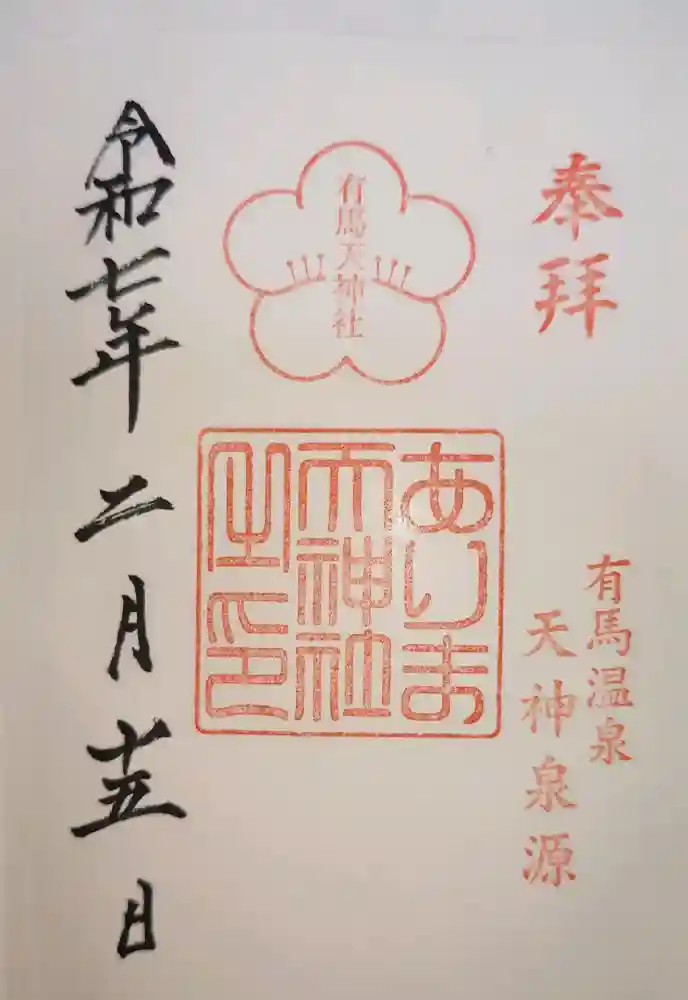 奉拝
有馬温泉
天神泉源
有馬天神社
ありま
天神社
之印
令和七年二月十五日